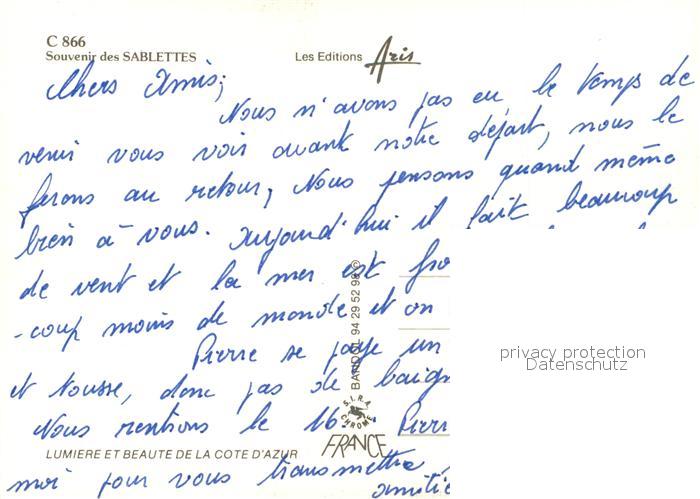 C 866
Souvenir des SABLETTES
Les Editions Aris
Chers Amis;
Nous n'avons pas eu le temps de
venir vous voir avant notre départ, nous le
ferons au retour, Nous pensons quand même
bien à vous. Aujourd'hui il fait beaucoup
de vent et la mer est
-coup moins de monde et on
Pierre se paye un
et tousse, donc pas de
Nous rentrons le 16.
LUMIERE ET BEAUTE DE LA COTE D'AZUR
moi pour vous transmettre
BANDOL 94 29 52 98 ©
S.I.R.A. CHROME
FRANCE
privacy protection
Datenschutz